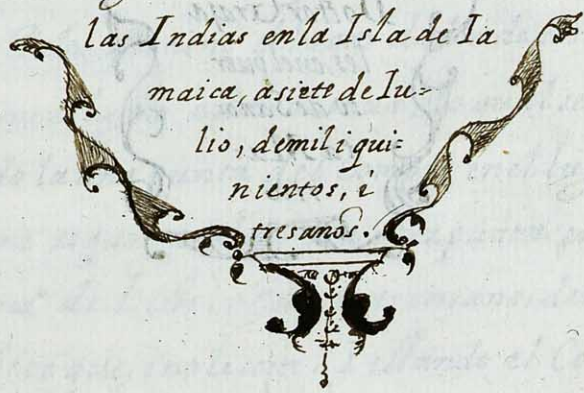 las Indias en la Isla de Ia
maica, a siete de Iu-
lio, de mil i qui-
nientos, i
tres años.